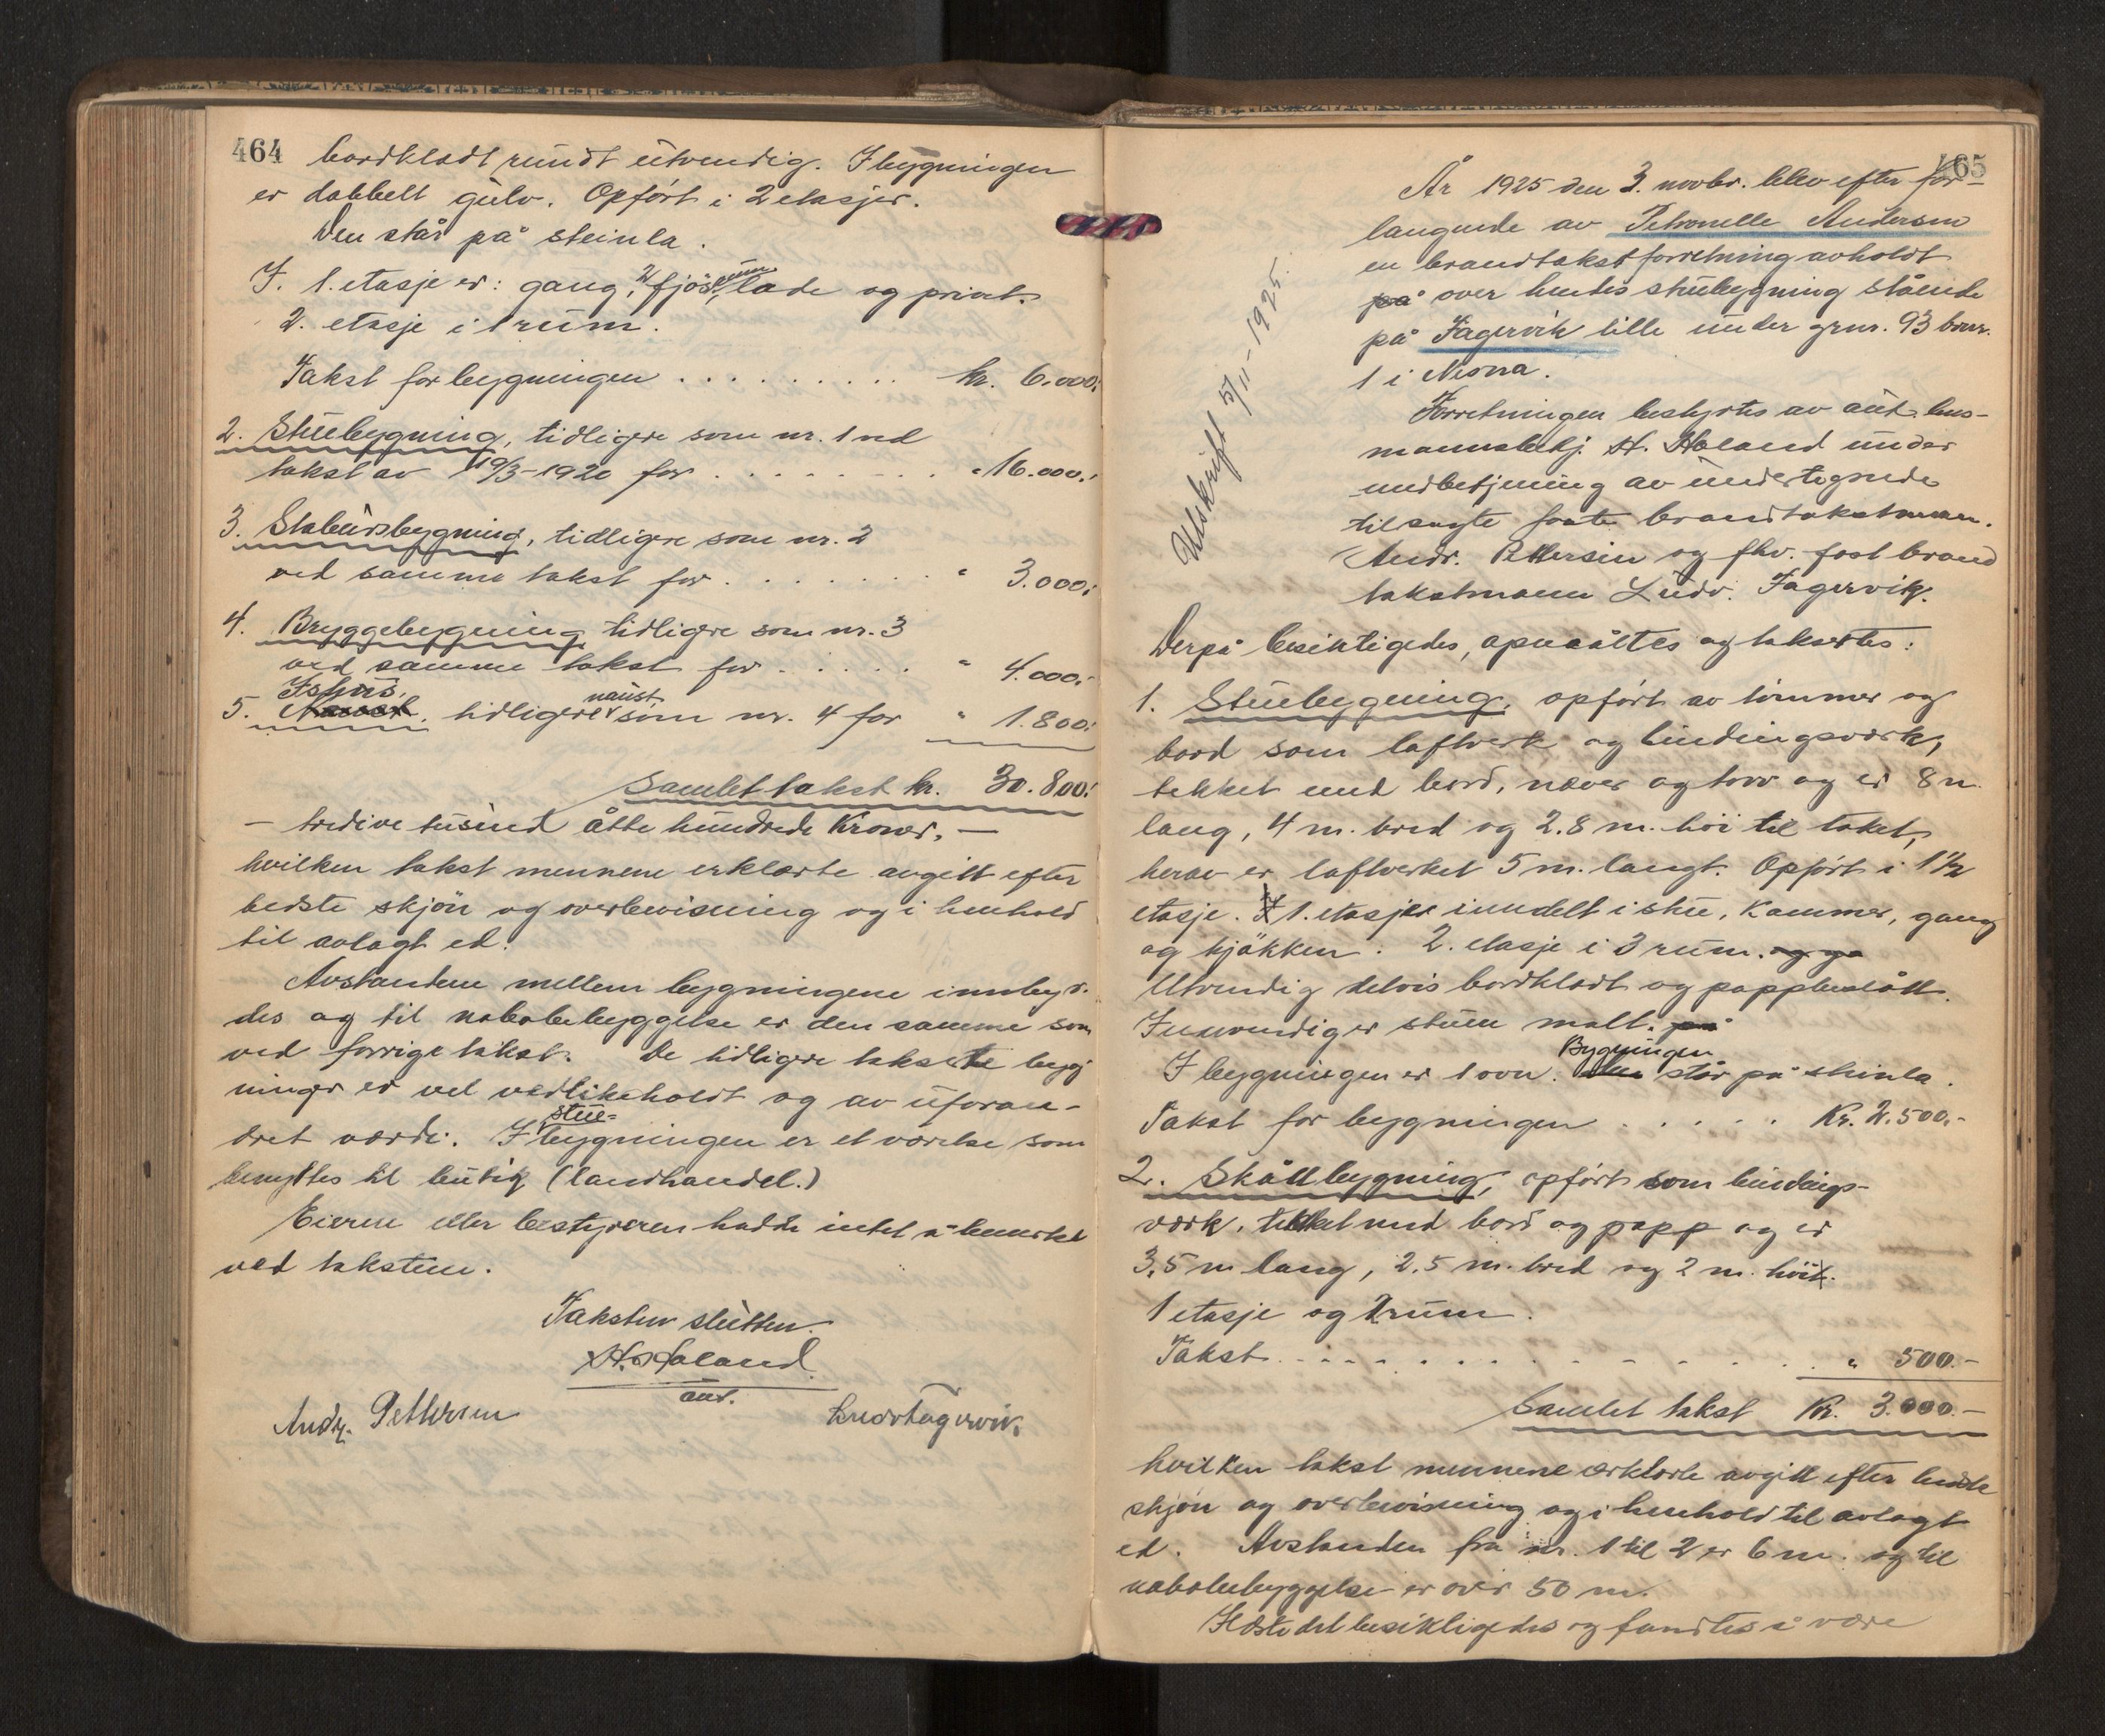 464 bordklædt rundt utvendig. I bygningen
er dobbelt gulv. Opført i 2 etasjer.
Den står på steinla.
I. 1. etasje er: gang, 2 fjøsrum, lade og privet.
2. etasje i 1 rum.
Takst for bygningen . . . . . . . . . kr. 6.000.-
2. Stuebygning, tidligere som nr. 1 ved
takst av 19/3-1920 for . . . . . . . . " 16.000.-
3. Stabursbygning, tidligere som nr. 2
ved samme takst for . . . . . . . " 3.000.-
4. Bryggebygning tidligere som nr. 3
ved samme takst for . . . . . " 4.000.-
Ishus, naust
5. Naust, tidligere som nr. 4 for " 1.800.-
Samlet takst kr. 30.800.-
— tredive tusind åtte hundrede Kroner. —
hvilken takst mennene erklærte avgitt efter
bedste skjøn og overbevisning og i henhold
til avlagt ed.
Avstandene mellem bygningene innbyr-
des og til nabobebyggelse er den samme som
ved forrige takst. De tidligere takserte byg-
ninger er vel vedlikeholdt og av uforan-
stue-
dret værdi. I bygningen er et værelse som
benyttes til butik (landhandel.)
Eieren eller bestyreren hadde intet å bemerke
ved taksten.
Taksten sluttet.
H. Haland
aut.
Andr. Pettersen Ludv Fagervik
465
År 1925 den 3. novbr. blev efter for-
langende av Petronelle Andersen
en brandtakstforretning avholdt
på over hendes stuebygning stående
på Fagervik lille under grnr. 93 brnr.
1 i Nesna.
Forretningen bestyrtes av aut. lens-
mannsbetj. H. Haland under
medbetjening av undertegnede
tilsagte faste brandtakstmenn.
Andr. Pettersen og fhv. fast brand
takstmann Ludv. Fagervik.
Utskrift 5/11-1925.
Derpå besiktigedes, opmåltes og taksertes:
1. Stuebygning, opført av tømmer og
bord som laftverk og bindingsverk,
tekket med bord, næver og torv og er 8 m.
lang, 4 m. bred og 2.8 m. høi til taket,
herav er laftverket 5 m. langt. Opført i 1 1/2
etasje. I 1. etasje inndelt i stue, kammer, gang
og kjøkken. 2. etasje i 3 rum. og ga
Utvendig delvis bordklædt og pappbeslått.
Innvendig er stuen malt. på
Bygningen
I bygningen er 1 ovn. Den står på steinla.
Takst for bygningen . . . . . Kr. 2.500.-
2. Skåttbygning, opført som bindings-
værk. tekket med bord og papp og er
3,5 m lang, 2.5 m. bred og 2 m. høi.
1 etasje og 2 rum.
Takst . . . . . . . . . . . . . " 500.-
Samlet takst Kr. 3.000.-
hvilken takst mennene erklærte avgitt efter bedste
skjøn og overbevisning og i henhold til avlagt
ed. Avstanden fra nr. 1 til 2 er 6 m. og til
nabobebyggelse er over 50 m.
Ildstedet besiktigedes og fandtes å være